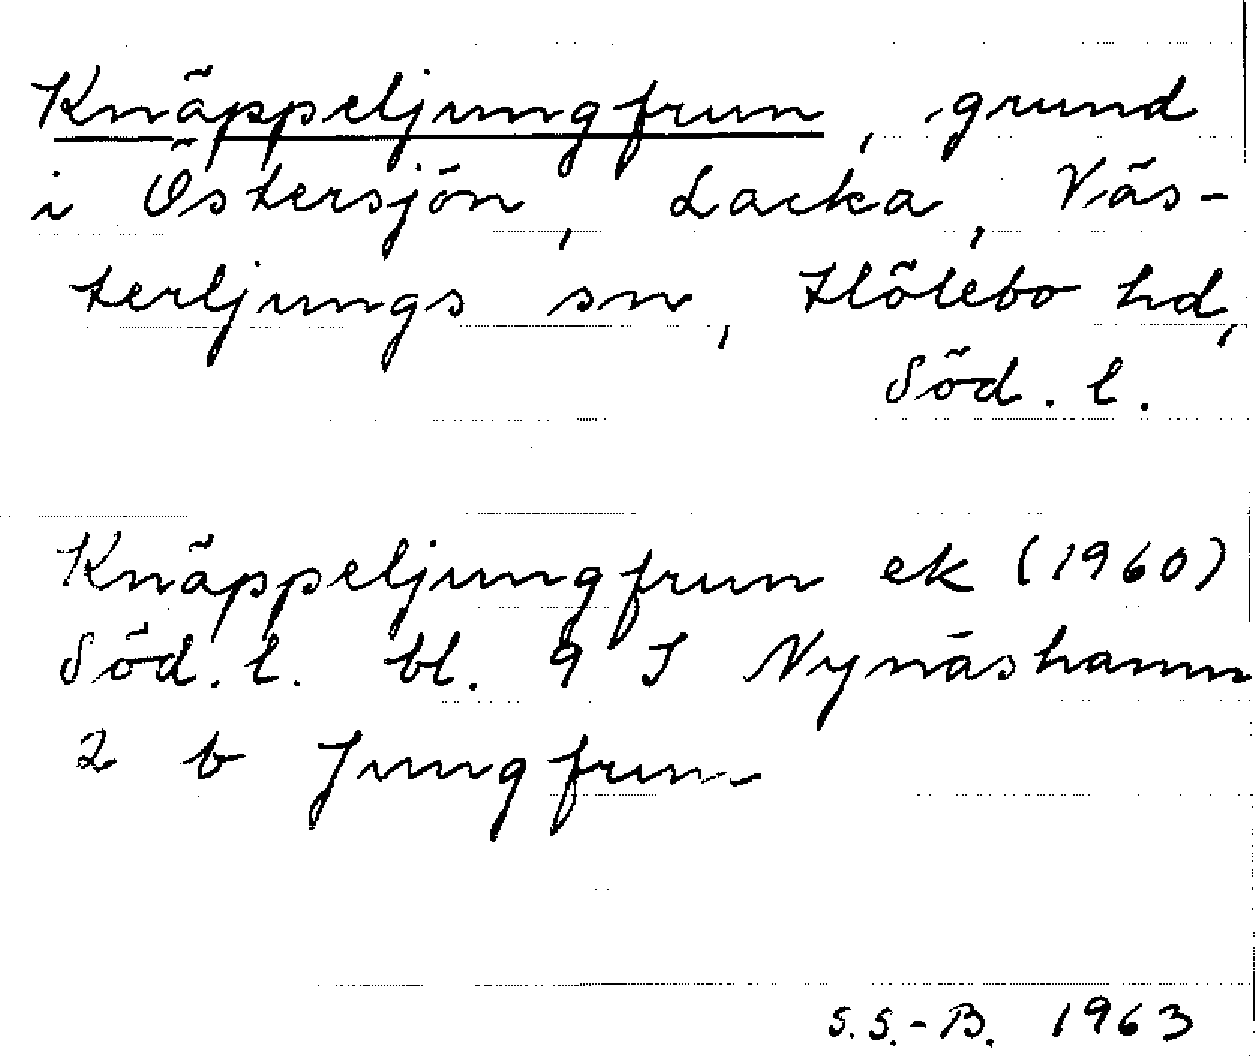 Knäppeljungfrun, grund
i Östersjön, Lacka, Väs-
terljungs sn, Hölebo hd,
Söd. l.
Knäppeljungfrun ek (1960)
Söd. l. bl. 9 J Nynäshamn
2 b Jungfrun
S.S.-B. 1963